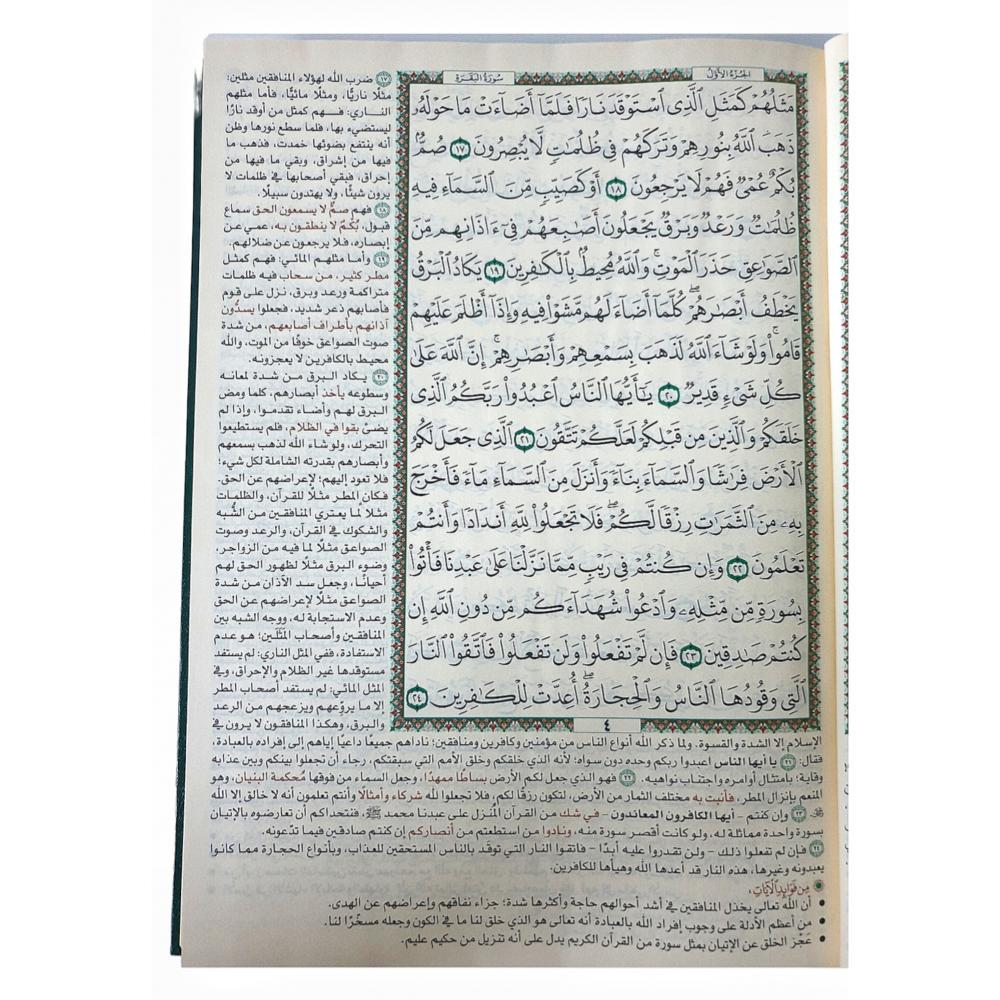 الجزء الأول
سورة البقرة
مَثَلُهُمْ كَمَثَلِ ٱلَّذِى ٱسْتَوْقَدَ نَارًا فَلَمَّآ أَضَآءَتْ مَا حَوْلَهُۥ
ذَهَبَ ٱللَّهُ بِنُورِهِمْ وَتَرَكَهُمْ فِى ظُلُمَٰتٍ لَّا يُبْصِرُونَ ١٧ صُمٌّۢ
بُكْمٌ عُمْىٌ فَهُمْ لَا يَرْجِعُونَ ١٨ أَوْ كَصَيِّبٍ مِّنَ ٱلسَّمَآءِ فِيهِ
ظُلُمَٰتٌ وَرَعْدٌ وَبَرْقٌ يَجْعَلُونَ أَصَٰبِعَهُمْ فِىٓ ءَاذَانِهِم مِّنَ
ٱلصَّوَٰعِقِ حَذَرَ ٱلْمَوْتِ ۚ وَٱللَّهُ مُحِيطٌۢ بِٱلْكَٰفِرِينَ ١٩ يَكَادُ ٱلْبَرْقُ
يَخْطَفُ أَبْصَٰرَهُمْ ۖ كُلَّمَآ أَضَآءَ لَهُم مَّشَوْا۟ فِيهِ وَإِذَآ أَظْلَمَ عَلَيْهِمْ
قَامُوا۟ ۚ وَلَوْ شَآءَ ٱللَّهُ لَذَهَبَ بِسَمْعِهِمْ وَأَبْصَٰرِهِمْ ۚ إِنَّ ٱللَّهَ عَلَىٰ
كُلِّ شَىْءٍ قَدِيرٌ ٢٠ يَٰٓأَيُّهَا ٱلنَّاسُ ٱعْبُدُوا۟ رَبَّكُمُ ٱلَّذِى
خَلَقَكُمْ وَٱلَّذِينَ مِن قَبْلِكُمْ لَعَلَّكُمْ تَتَّقُونَ ٢١ ٱلَّذِى جَعَلَ لَكُمُ
ٱلْأَرْضَ فِرَٰشًا وَٱلسَّمَآءَ بِنَآءً وَأَنزَلَ مِنَ ٱلسَّمَآءِ مَآءً فَأَخْرَجَ
بِهِۦ مِنَ ٱلثَّمَرَٰتِ رِزْقًا لَّكُمْ ۖ فَلَا تَجْعَلُوا۟ لِلَّهِ أَندَادًا وَأَنتُمْ
تَعْلَمُونَ ٢٢ وَإِن كُنتُمْ فِى رَيْبٍ مِّمَّا نَزَّلْنَا عَلَىٰ عَبْدِنَا فَأْتُوا۟
بِسُورَةٍ مِّن مِّثْلِهِۦ وَٱدْعُوا۟ شُهَدَآءَكُم مِّن دُونِ ٱللَّهِ إِن
كُنتُمْ صَٰدِقِينَ ٢٣ فَإِن لَّمْ تَفْعَلُوا۟ وَلَن تَفْعَلُوا۟ فَٱتَّقُوا۟ ٱلنَّارَ
ٱلَّتِى وَقُودُهَا ٱلنَّاسُ وَٱلْحِجَارَةُ ۖ أُعِدَّتْ لِلْكَٰفِرِينَ ٢٤
٤
١٧ ضرب الله لهؤلاء المنافقين مثلين:
مثلًا ناريًّا، ومثلًا مائيًّا، فأما مثلهم
الناري: فهم كمثل من أوقد نارًا
ليستضيء بها، فلما سطع نورها وظن
أنه ينتفع بضوئها خمدت، فذهب ما
فيها من إشراق، وبقي ما فيها من
إحراق، فبقي أصحابها في ظلمات لا
يرون شيئًا، ولا يهتدون سبيلًا.
١٨ فهم صمٌّ لا يسمعون الحق سماع
قبول، بُكْمٌ لا ينطقون به، عمي عن
إبصاره، فلا يرجعون عن ضلالهم.
١٩ وأما مثلهم المائي: فهم كمثل
مطر كثير، من سحاب فيه ظلمات
متراكمة ورعد وبرق، نزل على قوم
فأصابهم ذعر شديد، فجعلوا يسدُّون
آذانهم بأطراف أصابعهم، من شدة
صوت الصواعق خوفًا من الموت، والله
محيط بالكافرين لا يعجزونه.
٢٠ يكاد البرق من شدة لمعانه
وسطوعه يأخذ أبصارهم، كلما ومض
البرق لهم وأضاء تقدموا، وإذا لم
يضئ بقوا في الظلام، فلم يستطيعوا
التحرك، ولو شاء الله لذهب بسمعهم
وأبصارهم بقدرته الشاملة لكل شيء؛
فلا تعود إليهم؛ لإعراضهم عن الحق.
فكان المطر مثلًا للقرآن، والظلمات
مثلًا لما يعتري المنافقين من الشُّبه
والشكوك في القرآن، والرعد وصوت
الصواعق مثلًا لما فيه من الزواجر،
وضوء البرق مثلًا لظهور الحق لهم
أحيانًا، وجعل سد الآذان من شدة
الصواعق مثلًا لإعراضهم عن الحق
وعدم الاستجابة له، ووجه الشبه بين
المنافقين وأصحاب المثَلَين؛ هو عدم
الاستفادة، ففي المثل الناري: لم يستفد
مستوقدها غير الظلام والإحراق، وفي
المثل المائي: لم يستفد أصحاب المطر
إلا ما يروّعهم ويزعجهم من الرعد
والبرق، وهكذا المنافقون لا يرون في
الإسلام إلا الشدة والقسوة. ولما ذكر الله أنواع الناس من مؤمنين وكافرين ومنافقين؛ ناداهم جميعًا داعيًا إياهم إلى إفراده بالعبادة،
فقال: ٢١ يا أيها الناس اعبدوا ربكم وحده دون سواه؛ لأنه الذي خلقكم وخلق الأمم التي سبقتكم، رجاء أن تجعلوا بينكم وبين عذابه
وقاية؛ بامتثال أوامره واجتناب نواهيه. ٢٢ فهو الذي جعل لكم الأرض بساطًا ممهدًا، وجعل السماء من فوقها مُحكمة البنيان، وهو
المنعم بإنزال المطر، فأنبت به مختلف الثمار من الأرض، لتكون رزقًا لكم، فلا تجعلوا لله شركاء وأمثالًا وأنتم تعلمون أنه لا خالق إلا الله
ﷻ. ٢٣ وإن كنتم – أيها الكافرون المعاندون – في شك من القرآن المُنزل على عبدنا محمد ﷺ، فنتحداكم أن تعارضوه بالإتيان
بسورة واحدة مماثلة له، ولو كانت أقصر سورة منه، ونادوا من استطعتم من أنصاركم إن كنتم صادقين فيما تدَّعونه.
٢٤ فإن لم تفعلوا ذلك – ولن تقدروا عليه أبدًا – فاتقوا النار التي توقد بالناس المستحقين للعذاب، وبأنواع الحجارة مما كانوا
يعبدونه وغيرها، هذه النار قد أعدها الله وهيأها للكافرين.
من فوائد الآيات:
• أن الله تعالى يخذل المنافقين في أشد أحوالهم حاجة وأكثرها شدة؛ جزاء نفاقهم وإعراضهم عن الهدى.
• من أعظم الأدلة على وجوب إفراد الله بالعبادة أنه تعالى هو الذي خلق لنا ما في الكون وجعله مسخَّرًا لنا.
• عَجْز الخلق عن الإتيان بمثل سورة من القرآن الكريم يدل على أنه تنزيل من حكيم عليم.